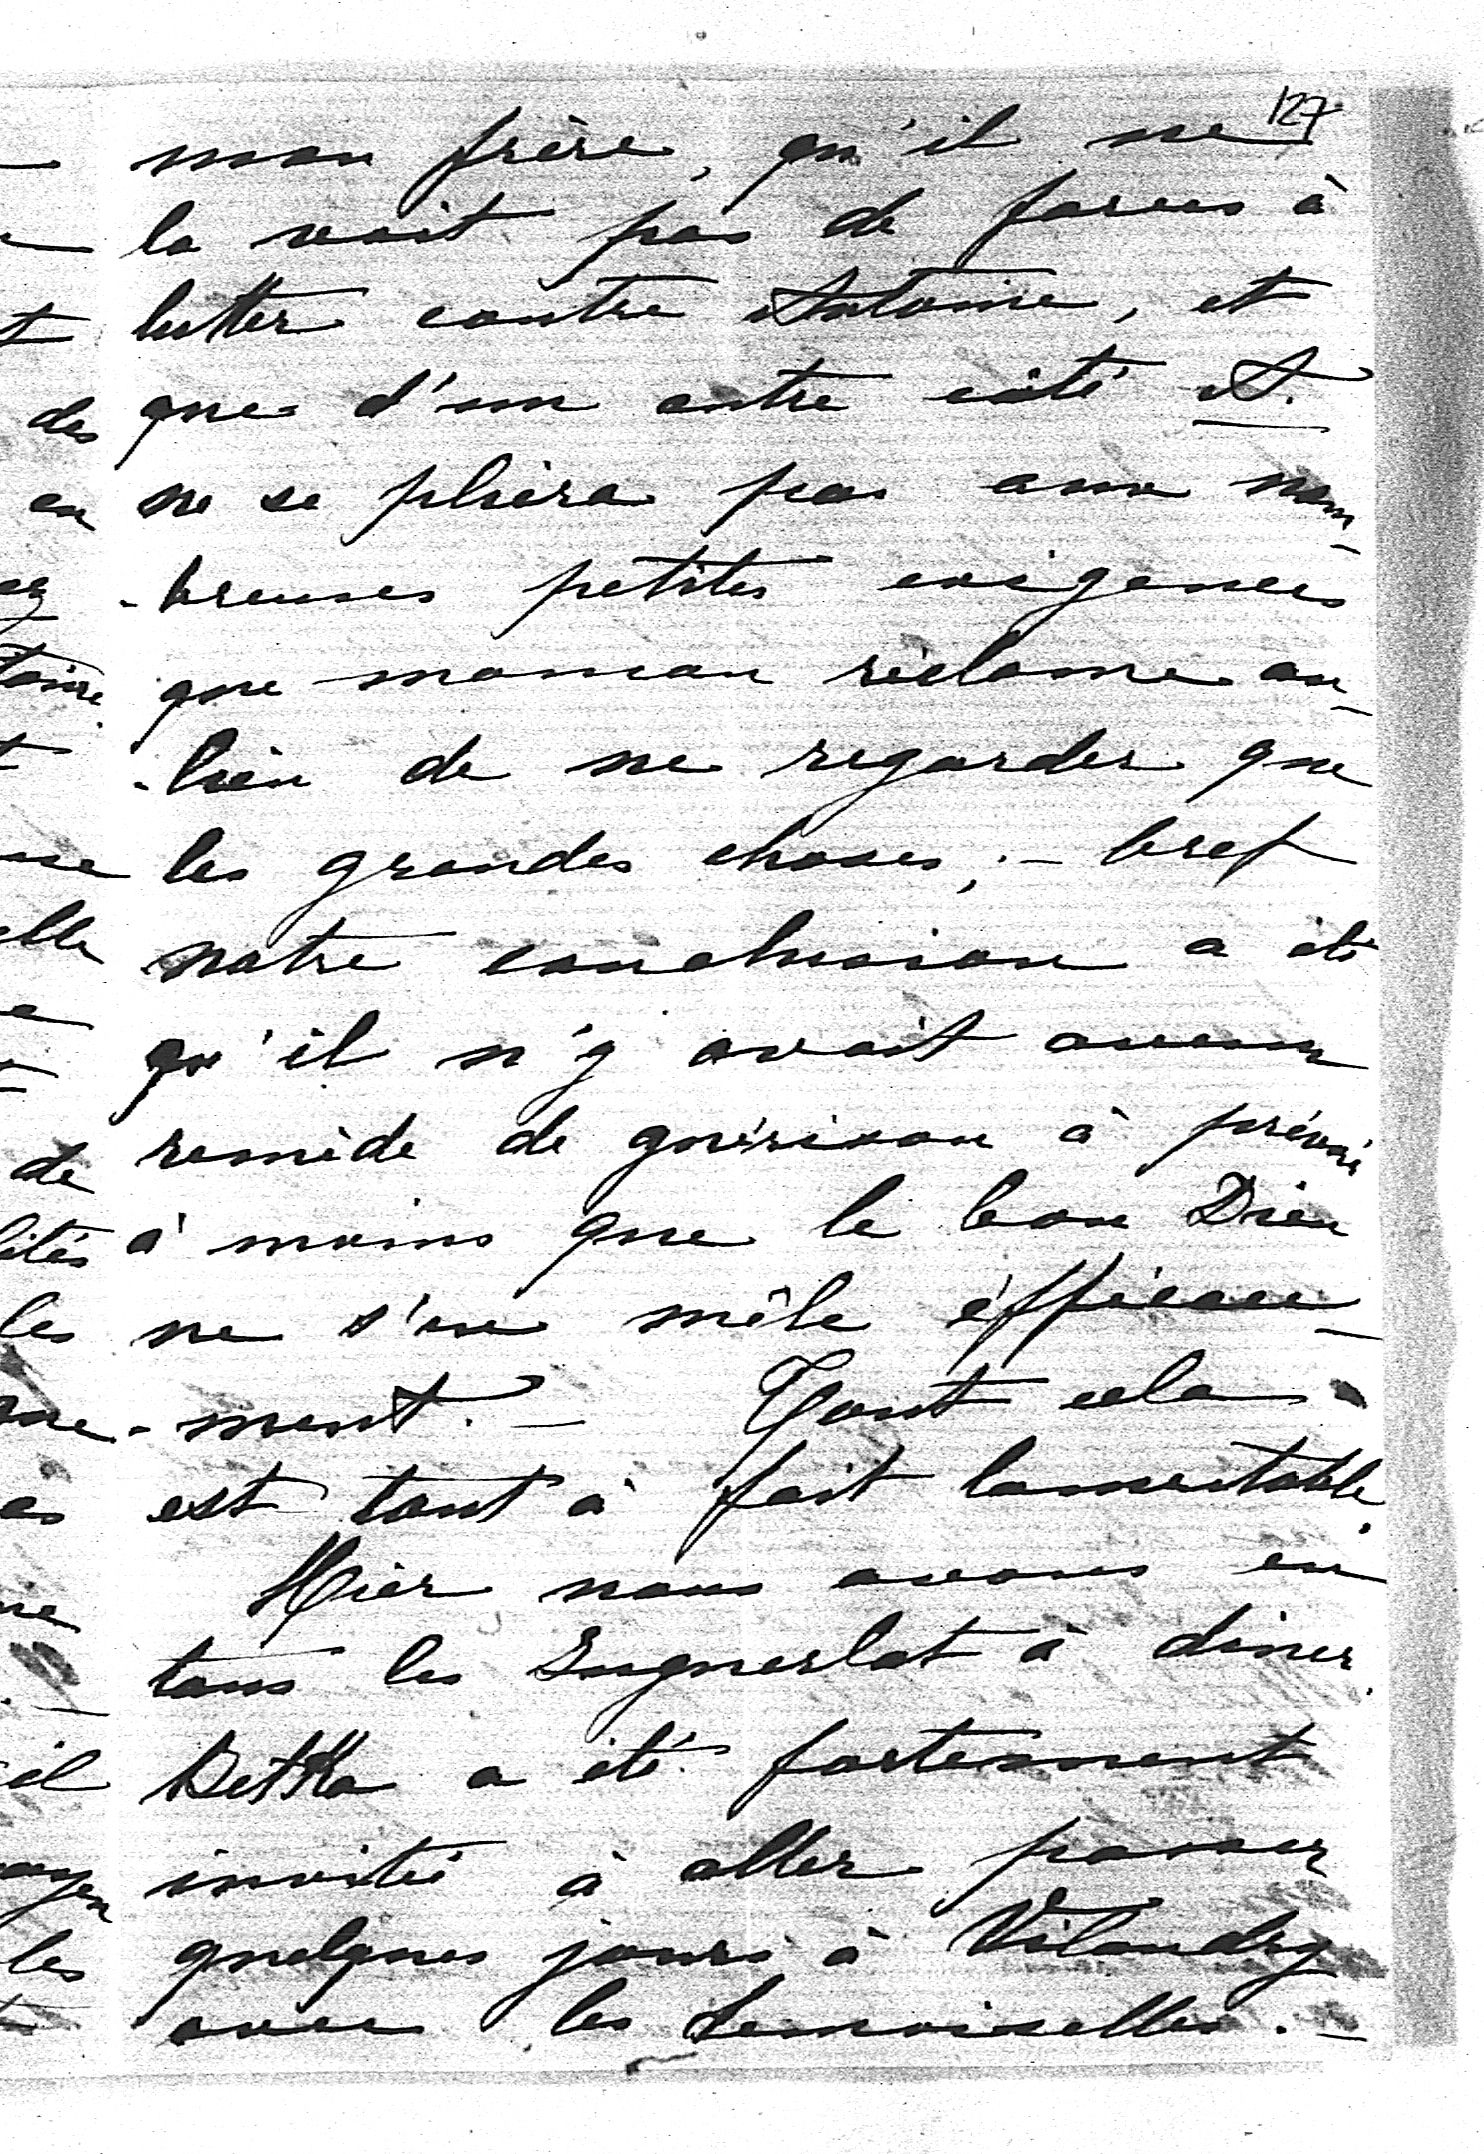 127
mon frère, qu'il ne
la voit pas de forces à
lutter contre Antoine, et
que d'un autre côté A.
ne se pliera pas aux nom-
-breuses petites exigences
que maman réclame au-
-lieu de ne regarder que
les grandes choses; - bref
notre conclusion a été
qu'il n'y avait aucun
remède de guérison à prévoir
à moins que le bon Dieu
ne s'en mêle éfficace-
-ment. - Tout cela
est tout à fait lamentable.
Hier nous avons eu
tous les Inguerlot à diner.
Betka a été fortement
invitée à aller passer
quelques jours à Vilandry
avec les demoiselles. -